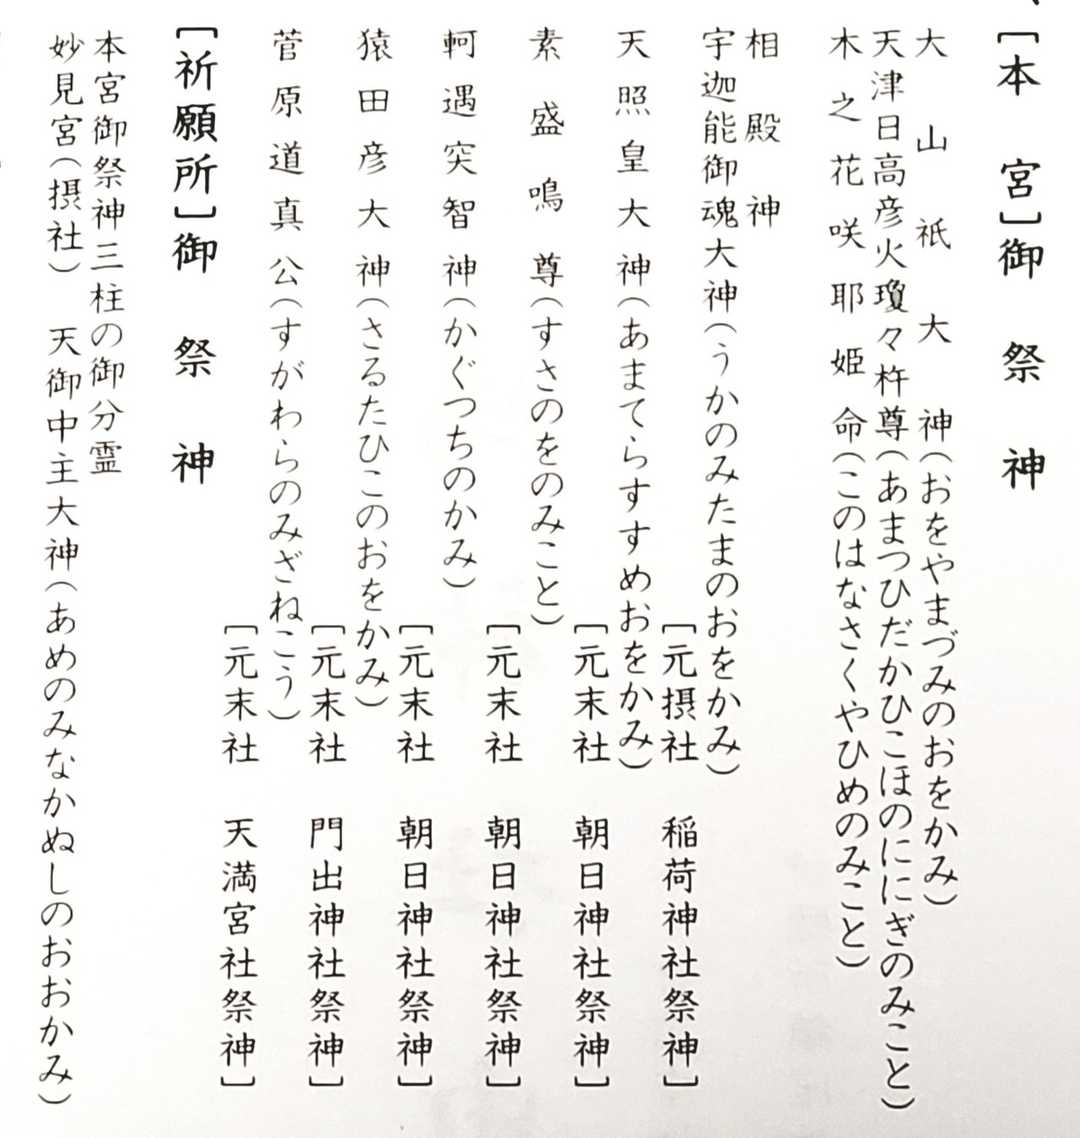 [本宮]御祭神
大山祇大神(おをやまづみのおをかみ)
天津日高彦火瓊々杵尊(あまつひだかひこほのににぎのみこと)
木之花咲耶姫命(このはなさくやひめのみこと)
相殿神
宇迦能御魂大神(うかのみたまのおをかみ)
[元摂社 稲荷神社祭神]
天照皇大神(あまてらすすめおをかみ)
[元末社 朝日神社祭神]
素盛鳴尊(すさのをのみこと)
[元末社 朝日神社祭神]
軻遇突智神(かぐつちのかみ)
[元末社 朝日神社祭神]
猿田彦大神(さるたひこのおをかみ)
[元末社 門出神社祭神]
菅原道真公(すがわらのみざねこう)
[元末社 天満宮社祭神]
[祈願所]御祭神
本宮御祭神三柱の御分霊
妙見宮(摂社) 天御中主大神(あめのみなかぬしのおおかみ)